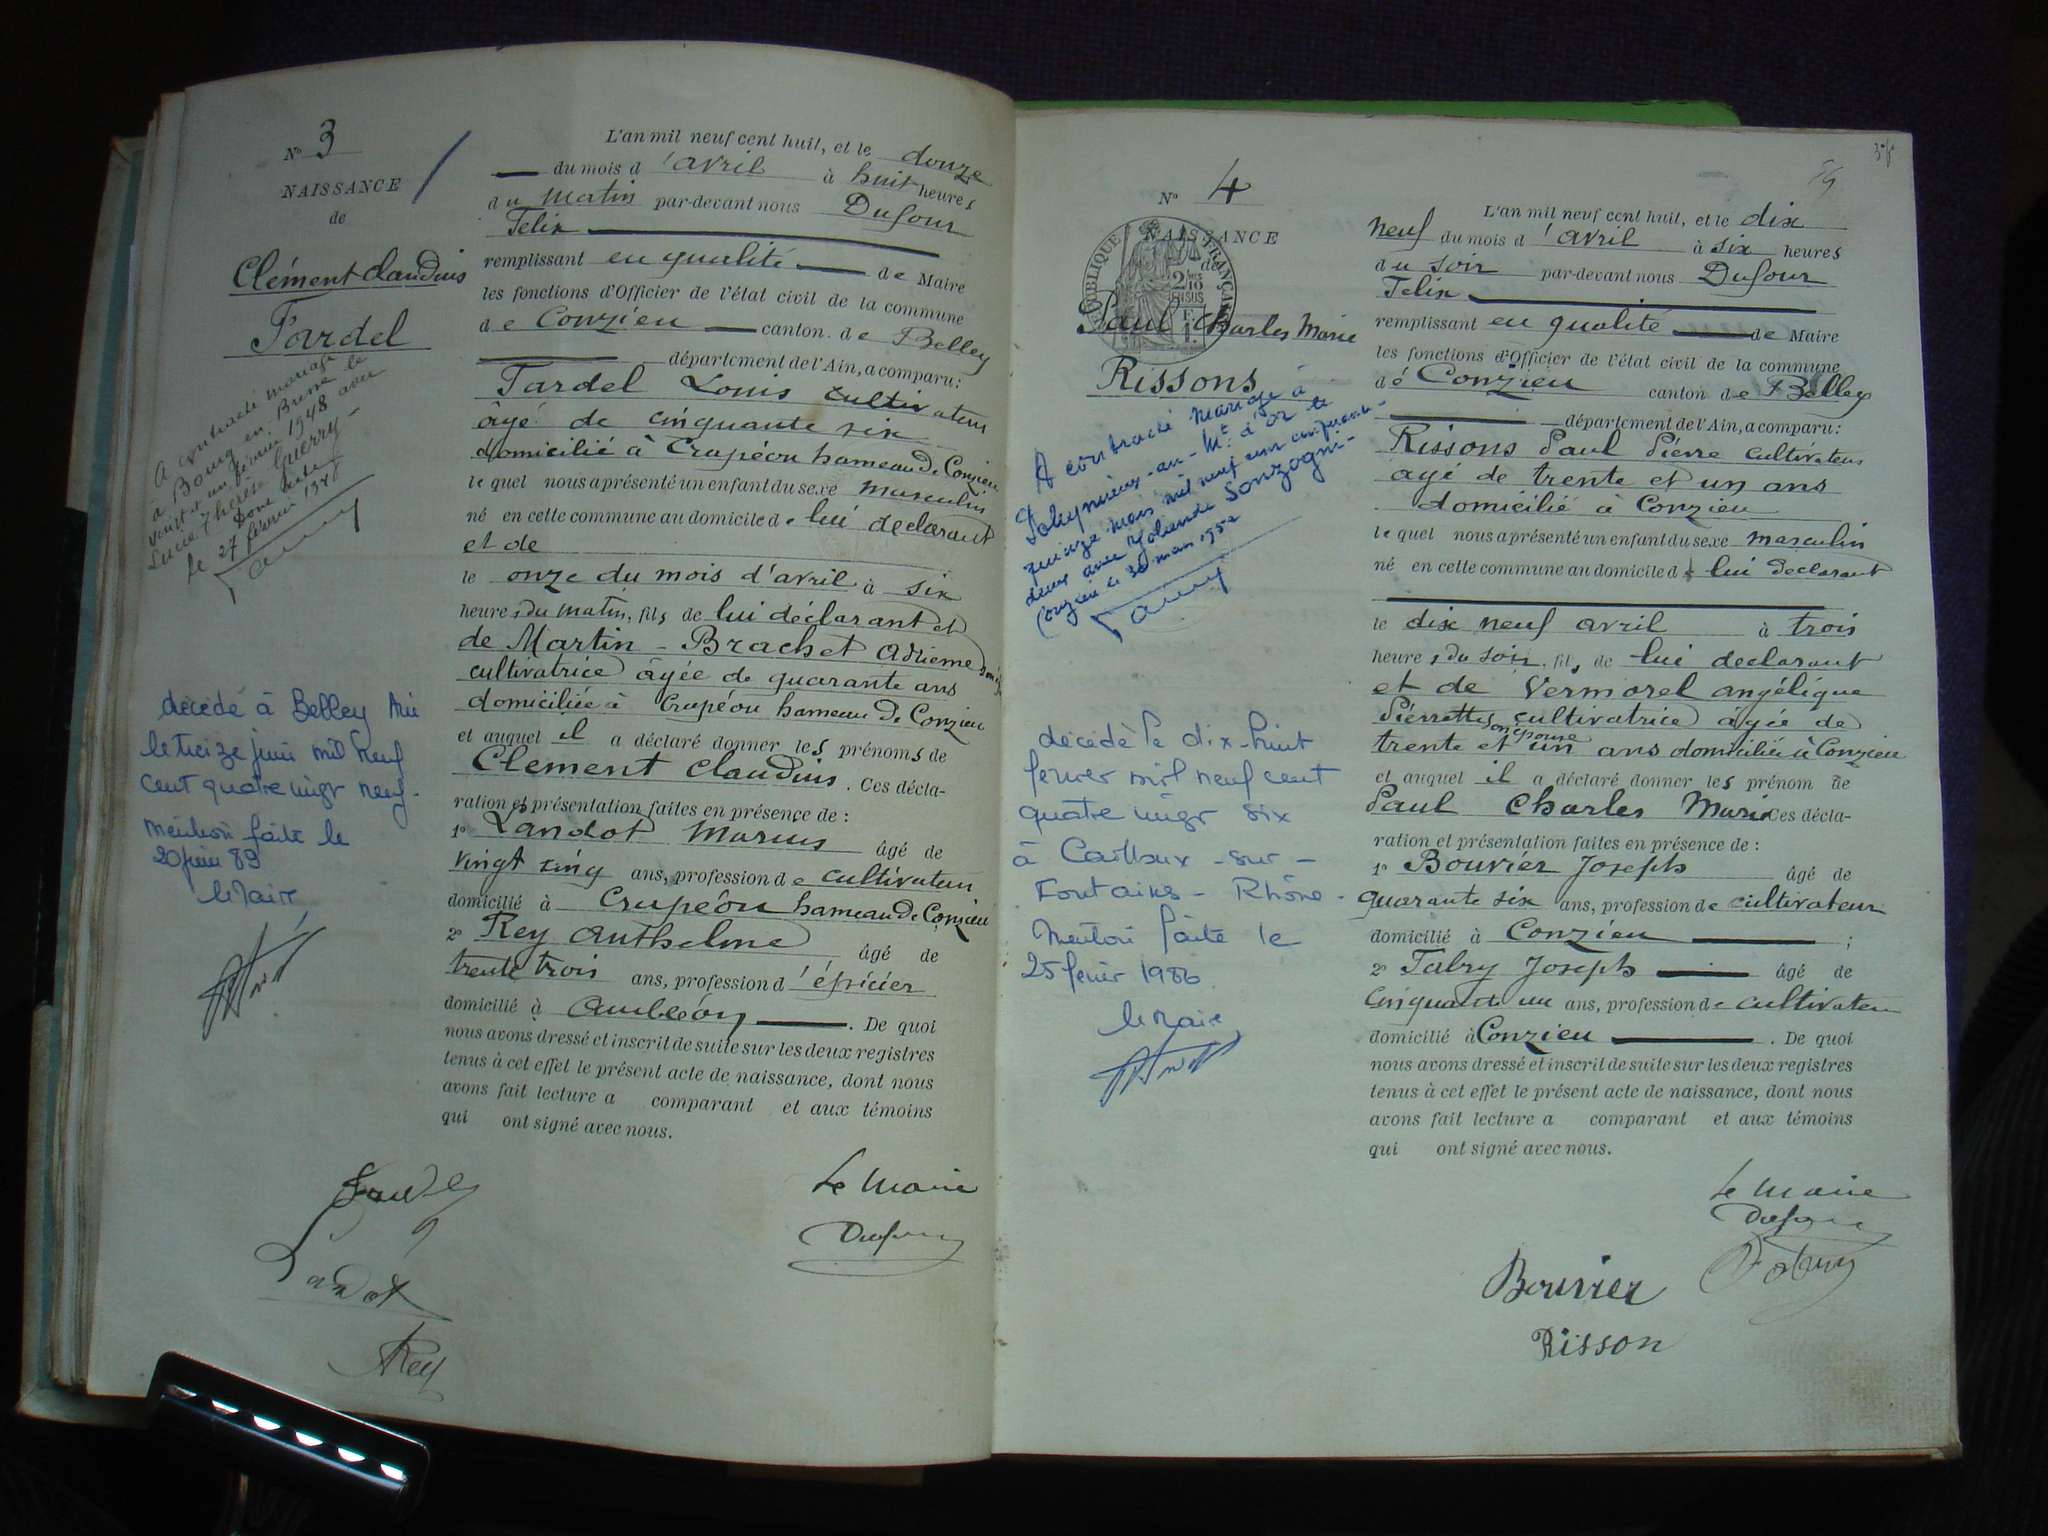 N° 3
NAISSANCE
de
Clément Claudius
Tardel
A contracté mariage
à Bourg en Bresse le
vingt un février 1948 avec
Lucie Thérèse Guerry -
Dont acte
le 27 février 1948
décédé à Belley Ain
le treize juin mil neuf
cent quatre vingt neuf.
Mention faite le
20 juin 89
le Maire
L'an mil neuf cent huit, et le douze
du mois d'avril à huit heures
du matin par-devant nous Dufour
Felix
remplissant en qualité de Maire
les fonctions d'Officier de l'état civil de la commune
de Conzieu canton de Belley
département de l'Ain, a comparu:
Tardel Louis cultivateur
âgé de cinquante six
domicilié à Crapéou hameau de Conzieu
lequel nous a présenté un enfant du sexe masculin
né en cette commune au domicile de lui declarant
et de
le onze du mois d'avril à six
heures du matin, fils de lui déclarant et
de Martin - Brachet
cultivatrice âgée de quarante ans
domiciliée à Crapéou hameau de Conzieu
et auquel il a déclaré donner les prénoms de
Clement Claudius. Ces décla-
ration et présentation faites en présence de :
1° Landot Marius âgé de
vingt cinq ans, profession de cultivateur
domicilié à Crapéou hameau de Conzieu
2° Rey Anthelme âgé de
trente trois ans, profession d'épicier
domicilié à Ambléon. De quoi
nous avons dressé et inscrit de suite sur les deux registres
tenus à cet effet le présent acte de naissance, dont nous
avons fait lecture a comparant et aux témoins
qui ont signé avec nous.
Le Maire
Dufour
Landot
Rey
N° 4
NAISSANCE
de
RÉPUBLIQUE FRANÇAISE
2/10 EN SUS
Paul Charles Marie
Rissons
A contracté mariage à
Poleymieux-au-Mt d'Or le
quinze mars mil neuf cent cinquante-
deux avec Yolande Sonzogni-
Conzieu le 30 mars 1952
décédé le dix-huit
fevrier mil neuf cent
quatre vingt six
à Cailloux-sur-
Fontaines - Rhône.
Mention faite le
25 fevrier 1986
le Maire
L'an mil neuf cent huit, et le dix
neuf du mois d'avril à six heures
du soir par-devant nous Dufour
Felix
remplissant en qualité de Maire
les fonctions d'Officier de l'état civil de la commune
de Conzieu canton de Belley
département de l'Ain, a comparu:
Rissons Paul Pierre cultivateur
agé de trente et un ans
domicilié à Conzieu
lequel nous a présenté un enfant du sexe masculin
né en cette commune au domicile de lui declarant
le dix neuf avril à trois
heures du soir, fils de lui declarant
et de Vermorel angélique
Pierrette son épouse cultivatrice âgée de
trente et un ans domiciliée à Conzieu
et auquel il a déclaré donner les prénom de
Paul Charles Marie Ces décla-
ration et présentation faites en présence de :
1° Bouvier Joseph âgé de
quarante six ans, profession de cultivateur
domicilié à Conzieu ;
2° Fabry Joseph âgé de
cinquante un ans, profession de cultivateur
domicilié à Conzieu. De quoi
nous avons dressé et inscrit de suite sur les deux registres
tenus à cet effet le présent acte de naissance, dont nous
avons fait lecture a comparant et aux témoins
qui ont signé avec nous.
Le Maire
Dufour
Fabry
Bouvier
Risson